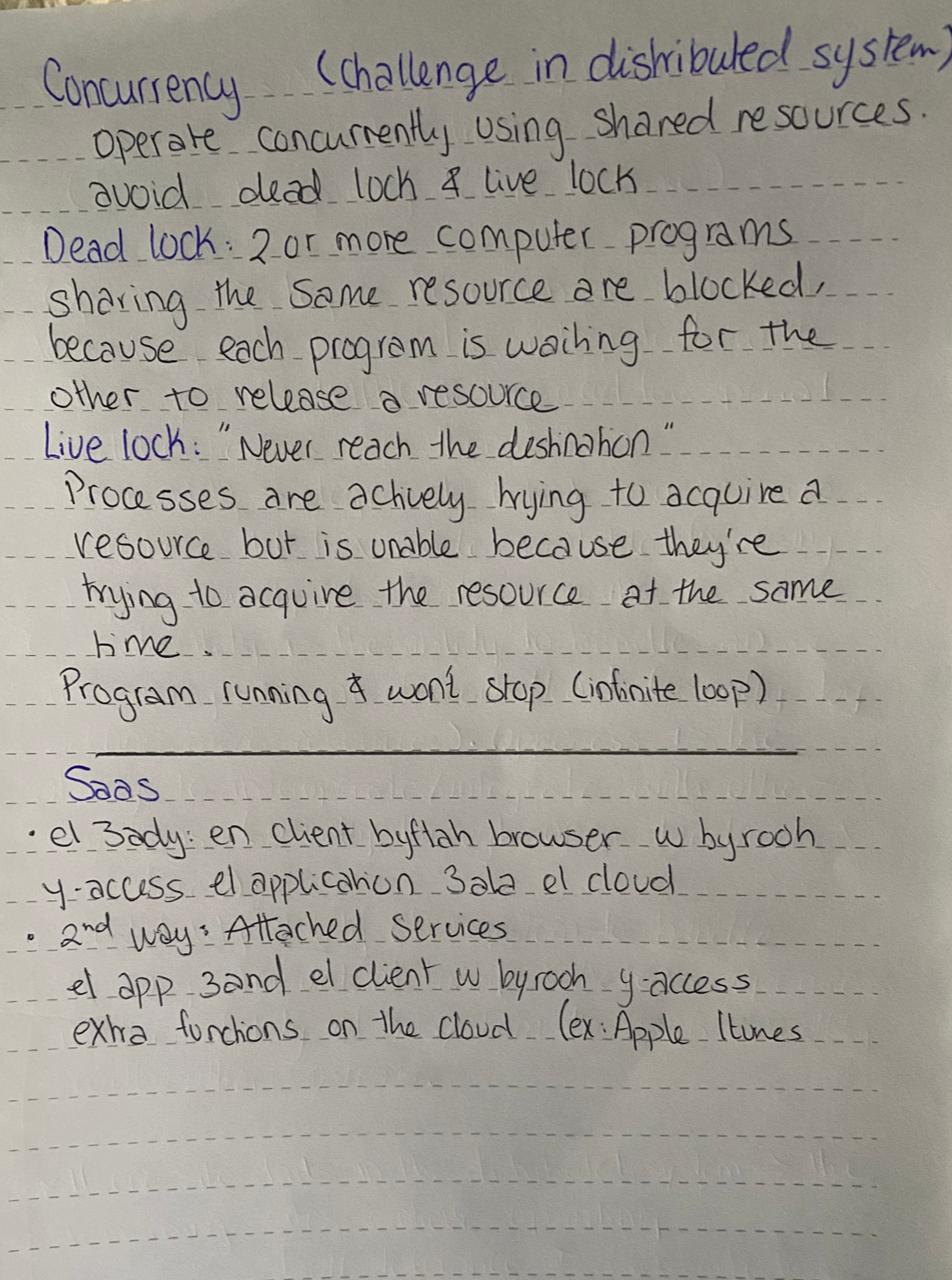 Concurrency (challenge in distributed system)
operate concurrently using shared resources.
avoid dead lock & live lock
Dead lock: 2 or more computer programs
sharing the same resource are blocked,
because each program is waiting for the
other to release a resource
Live lock: "Never reach the destination"
Processes are actively trying to acquire a
resource but is unable because they're
trying to acquire the resource at the same
time.
Program running & won't stop (infinite loop)
Saas
• el 3ady: en client byftah browser w byrooh
y-access el application 3ala el cloud
• 2nd way: Attached Services
el app 3and el client w byrooh y-access
extra functions on the cloud (ex: Apple Itunes